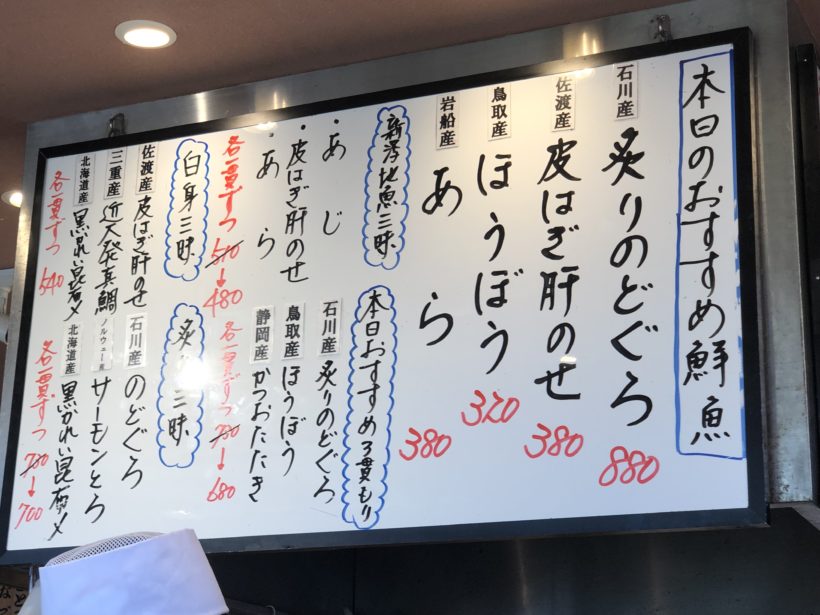 本日のおすすめ鮮魚
石川産 炙りのどぐろ 880
佐渡産 皮はぎ肝のせ 380
鳥取産 ほうぼう 320
岩船産 あら 380
新潟地魚三昧
・あじ
・皮はぎ肝のせ
・あら
各一貫ずつ 510→480
本日おすすめ3貫もり
石川産 炙りのどぐろ
鳥取産 ほうぼう
静岡産 かつおたたき
各一貫ずつ 780→680
白身三昧
佐渡産 皮はぎ肝のせ
三重産 近大発真鯛
北海道産 黒かれい昆布〆
各一貫ずつ 540
炙り三昧
石川産 のどぐろ
ノルウェー産 サーモンとろ
北海道産 黒かれい昆布〆
各一貫ずつ 780→700